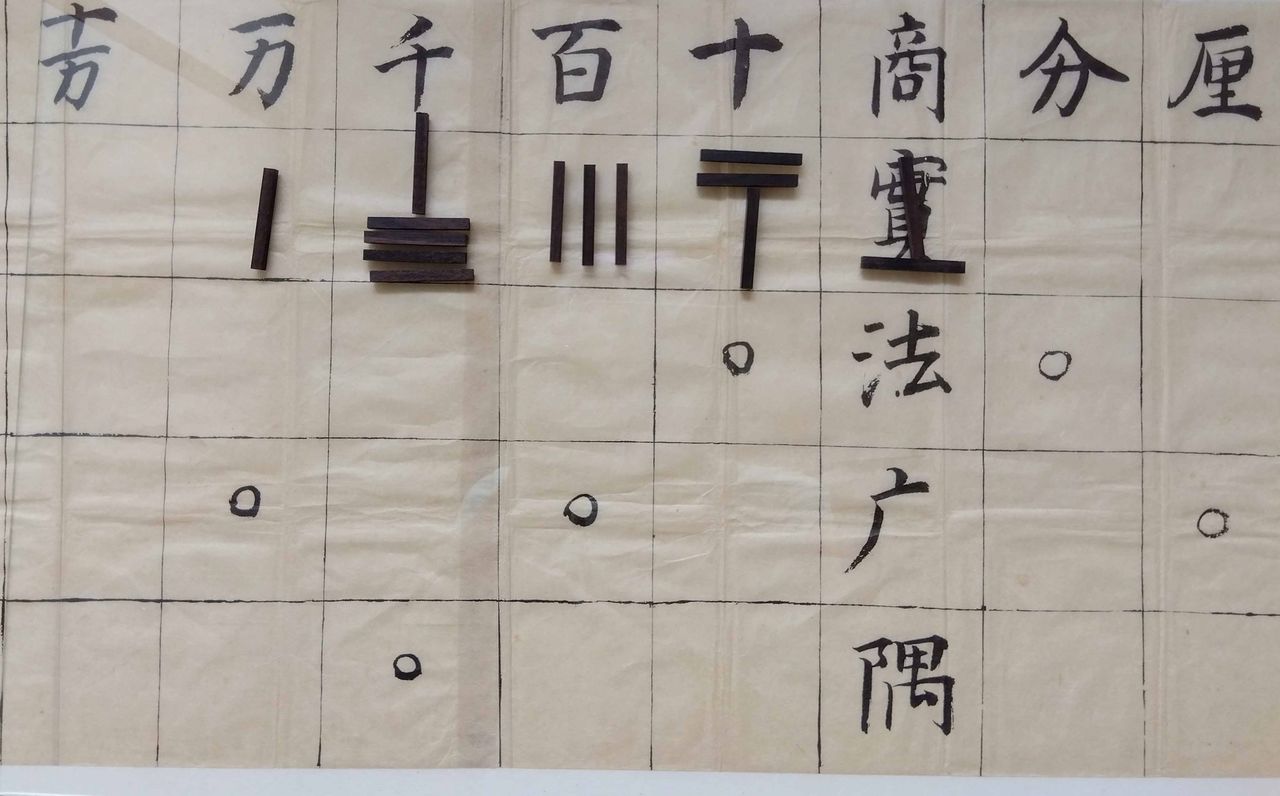 十万 万 千 百 十 商 分 厘
實
法
广
隅